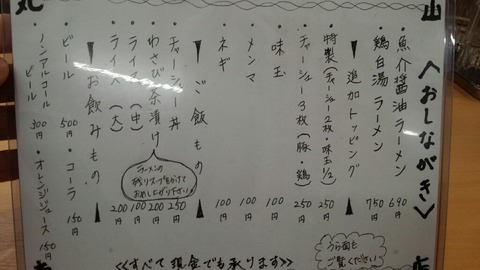 〈おしながき〉
・魚介醤油ラーメン 690円
・鶏白湯ラーメン 750円
追加トッピング
・特製(チャーシュー2枚・味玉1/2) 250円
・チャーシュー3枚(豚・鶏) 250円
・味玉 100円
・メンマ 100円
・ネギ 100円
ご飯もの
・チャーシュー丼 250円
・わさび茶漬け 200円
ラーメンの残りスープをかけておめしあがり下さい!
・ライス(中) 100円
・ライス(大) 200円
お飲みもの
・ビール 500円
・コーラ 150円
・ノンアルコールビール 300円
・オレンジジュース 150円
うら面もご覧ください
<<すべて現金でも承ります>>